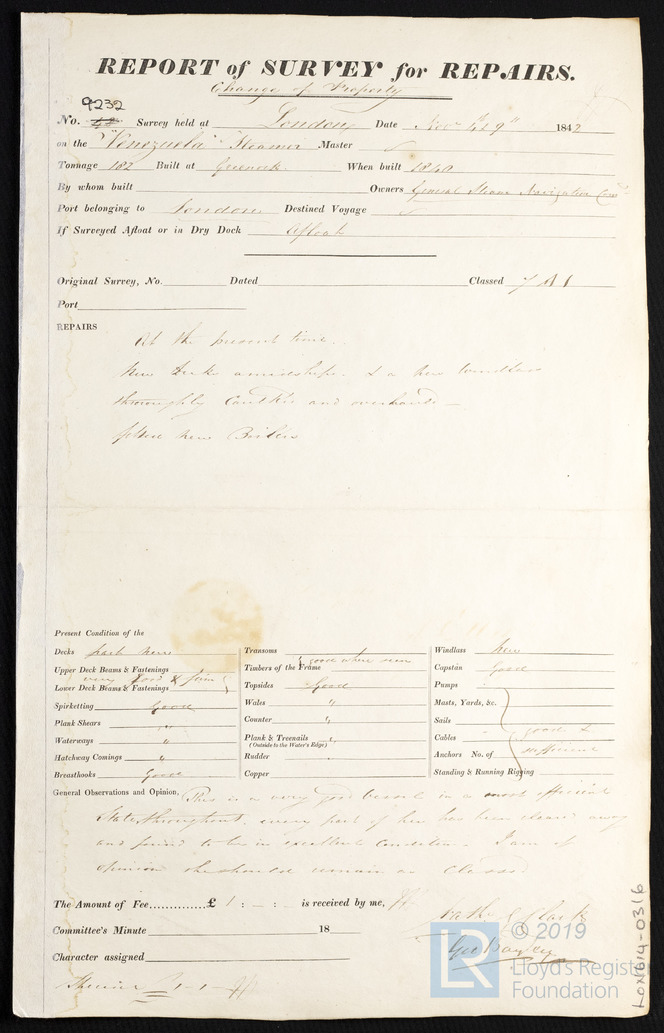 REPORT of SURVEY for REPAIRS.
Change of Property
9232
No. Survey held at London Date Nov 9" 1842
on the "Venezuela" Steamer Master ✓
Tonnage 182 Built at Greenock. When built 1840
By whom built Owners General Steam Navigation
Port belonging to London Destined Voyage ✓
If Surveyed Afloat or in Dry Dock Afloat
Original Survey, No. Dated Classed 7 A 1
Port
REPAIRS
At the present time.
New Decks amidships & a New Windlass
thoroughly Caulked and overhauled
New Boilers
Present Condition of the
Decks part New
Upper Deck Beams & Fastenings
very Good & firm
Lower Deck Beams & Fastenings
Spirketting Good
Plank Shears "
Waterways "
Hatchway Comings "
Breasthooks Good
Transoms
Timbers of the Frame good where seen
Topsides Good
Wales "
Counter "
Plank & Treenails "
(Outside to the Water's Edge)
Rudder
Copper
Windlass New
Capstan Good
Pumps
Masts, Yards, &c.
Sails
Cables good &
Anchors No. of sufficient
Standing & Running Rigging
General Observations and Opinion, This is a very good vessel in a most efficient
State, throughout, every part of her has been cleared away
and found to be in excellent condition. I am of
opinion she should remain as Classed
The Amount of Fee.............£ 1 : - : is received by me,
Committee's Minute 18
Character assigned
£ 1-1-
Nath. G Clark
Geo Bayley
LR © 2019
Lloyd's Register
Foundation
LON614-0316